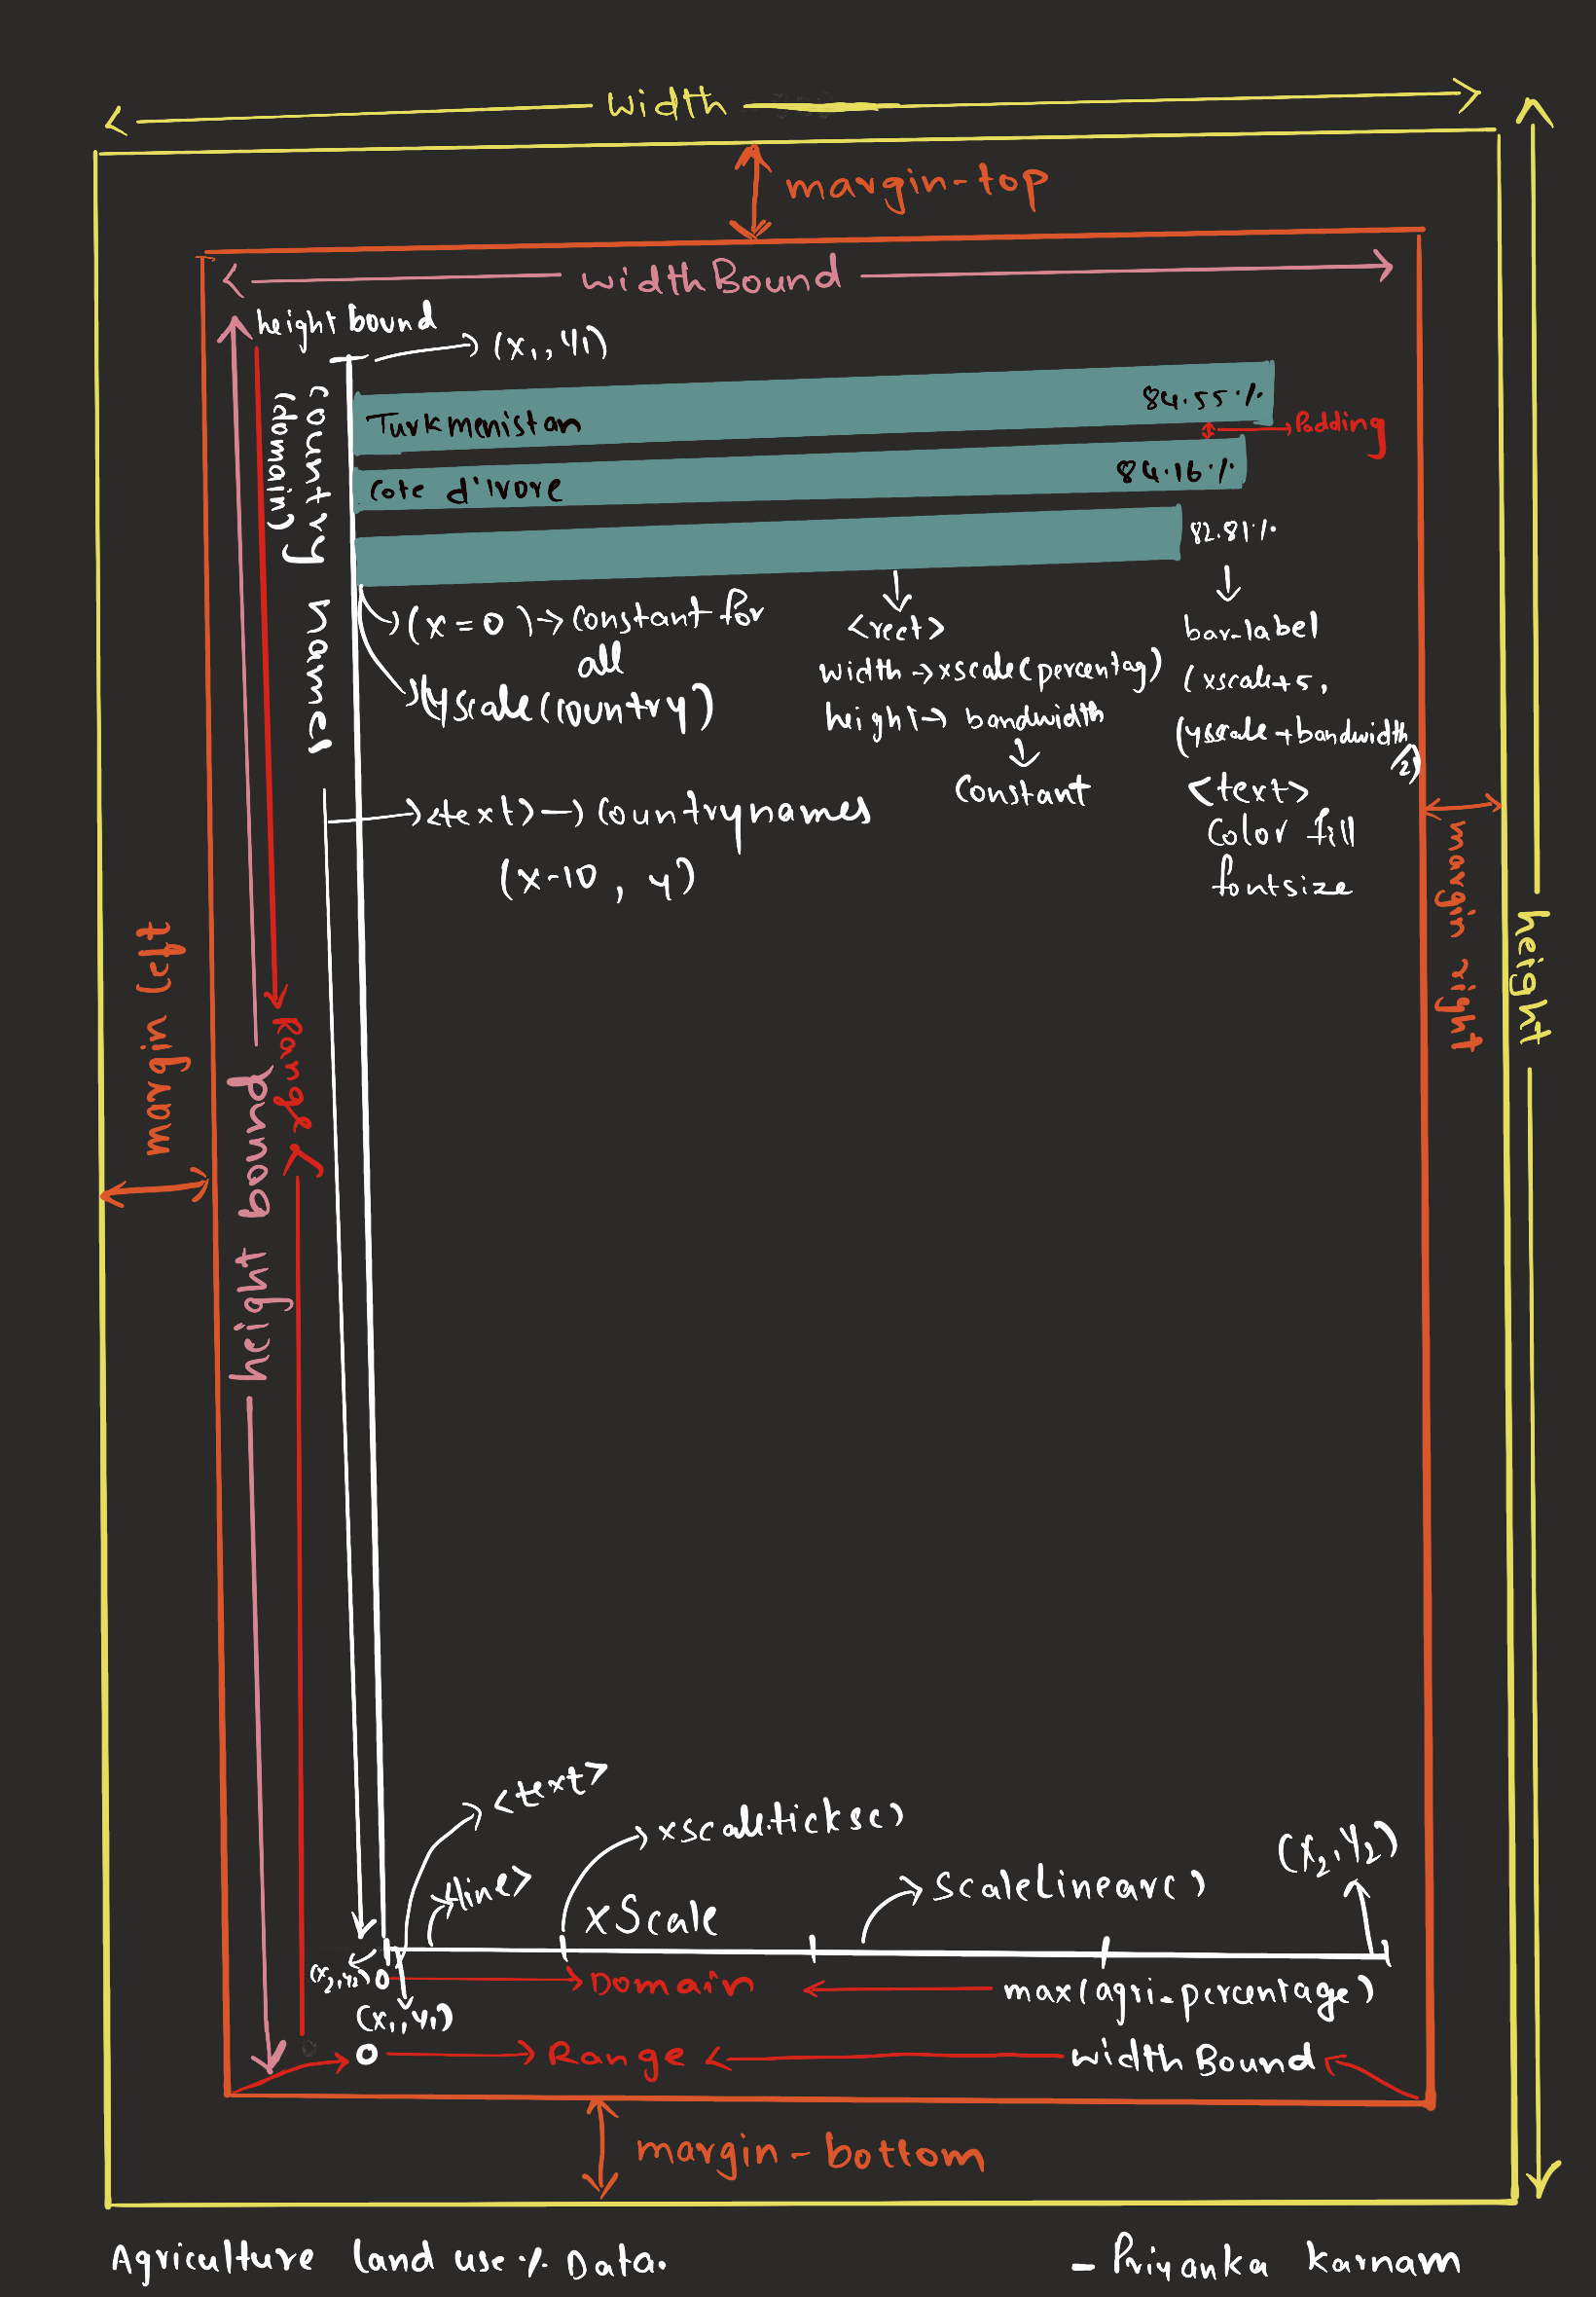 width
margin-top
widthBound
height bound
(x1, y1)
Turkmenistan
84.55%
Padding
Cote d'Ivore
84.16%
82.81%
country names
(domain)
(x = 0) → constant for
all
yscale(country)
<rect>
width → xscale(percentag)
height → bandwidth
constant
bar-label
(xscale+5,
(yscale + bandwidth
/2)
<text>
color fill
fontsize
<text> → countrynames
(x-10, y)
margin left
height bound
Range
margin right
height
<text>
<line>
xscale.ticks()
xScale
scaleLinear()
(x2, y2)
(x2, y2)
0
Domain
max(agri-percentage)
(x1, y1)
0
Range
widthBound
margin-bottom
Agriculture land use % Data.
- Priyanka Karnam